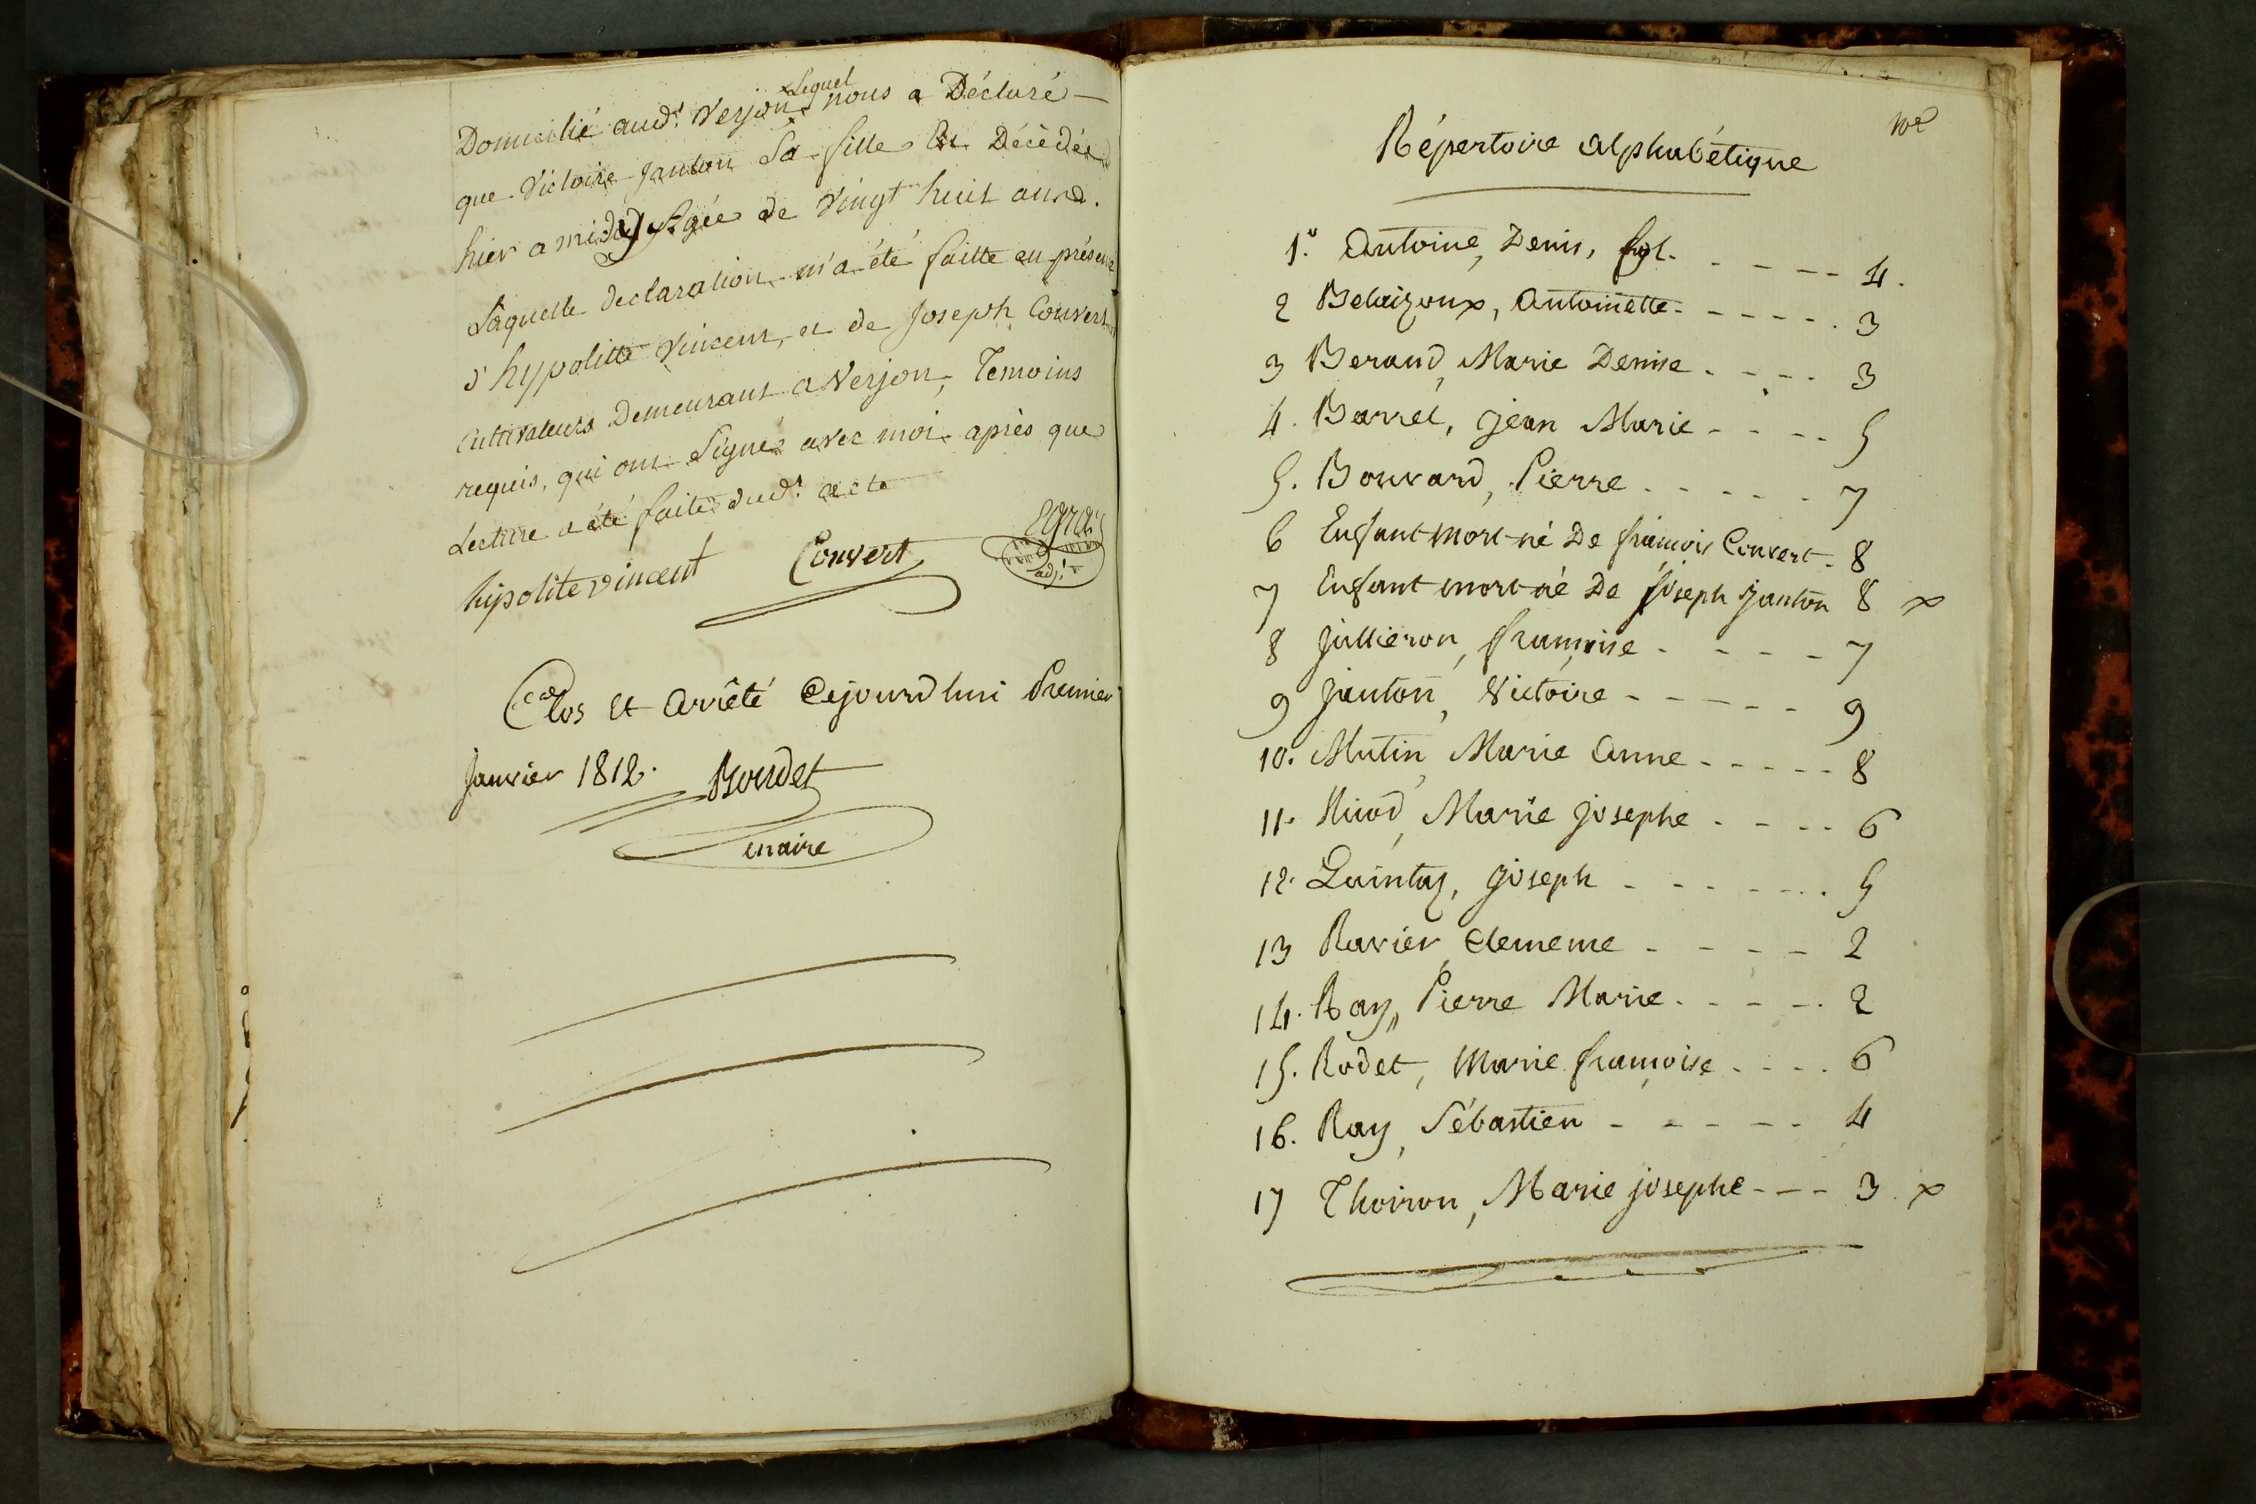 Domicilié aud.t Verjon, lequel nous a Déclaré
que Victoire Janton Sa fille Est Décédée
hier a midy Agée de Vingt huit ans.
Laquelle declaration m'a été faitte en présence
d'hypolitte Vincent, et de Joseph Convert
Cultivateurs Demeurant a Verjon, Temoins
requis, qui ont Signés avec moi après que
Lecture a été faite dud.t acte
hipolite vincent Convert
adj.t
Clos Et Arrêté Cejourd'hui Premier
Janvier 1812. Boudet
maire
10e
Répertoire Alphabétique
1.o Antoine, Denis, fol. - - - - - 4.
2 Belaizoux, Antoinette - - - - - 3
3 Beraud, Marie Denise - - - - 3
4. Barrel, jean Marie - - - - 5
5. Bouvard, Pierre - - - - - 7
6 Enfant mort-né De françois Convert - 8
7 Enfant mort-né De Joseph Janton 8 x
8 Jullieron, françoise - - - - 7
9 Janton, Victoire - - - - - 9
10. Mutin, Marie Anne - - - - - 8
11. Niod, Marie josephe - - - - 6
12. Quintaz, Joseph - - - - - - 5
13 Ravier, Clemence - - - - 2
14. Ray, Pierre Marie - - - - - 2
15. Rodet, Marie françoise - - - - 6
16. Ray, Sébastien - - - - - 4
17 Thoiron, Marie josephe - - - 3 x